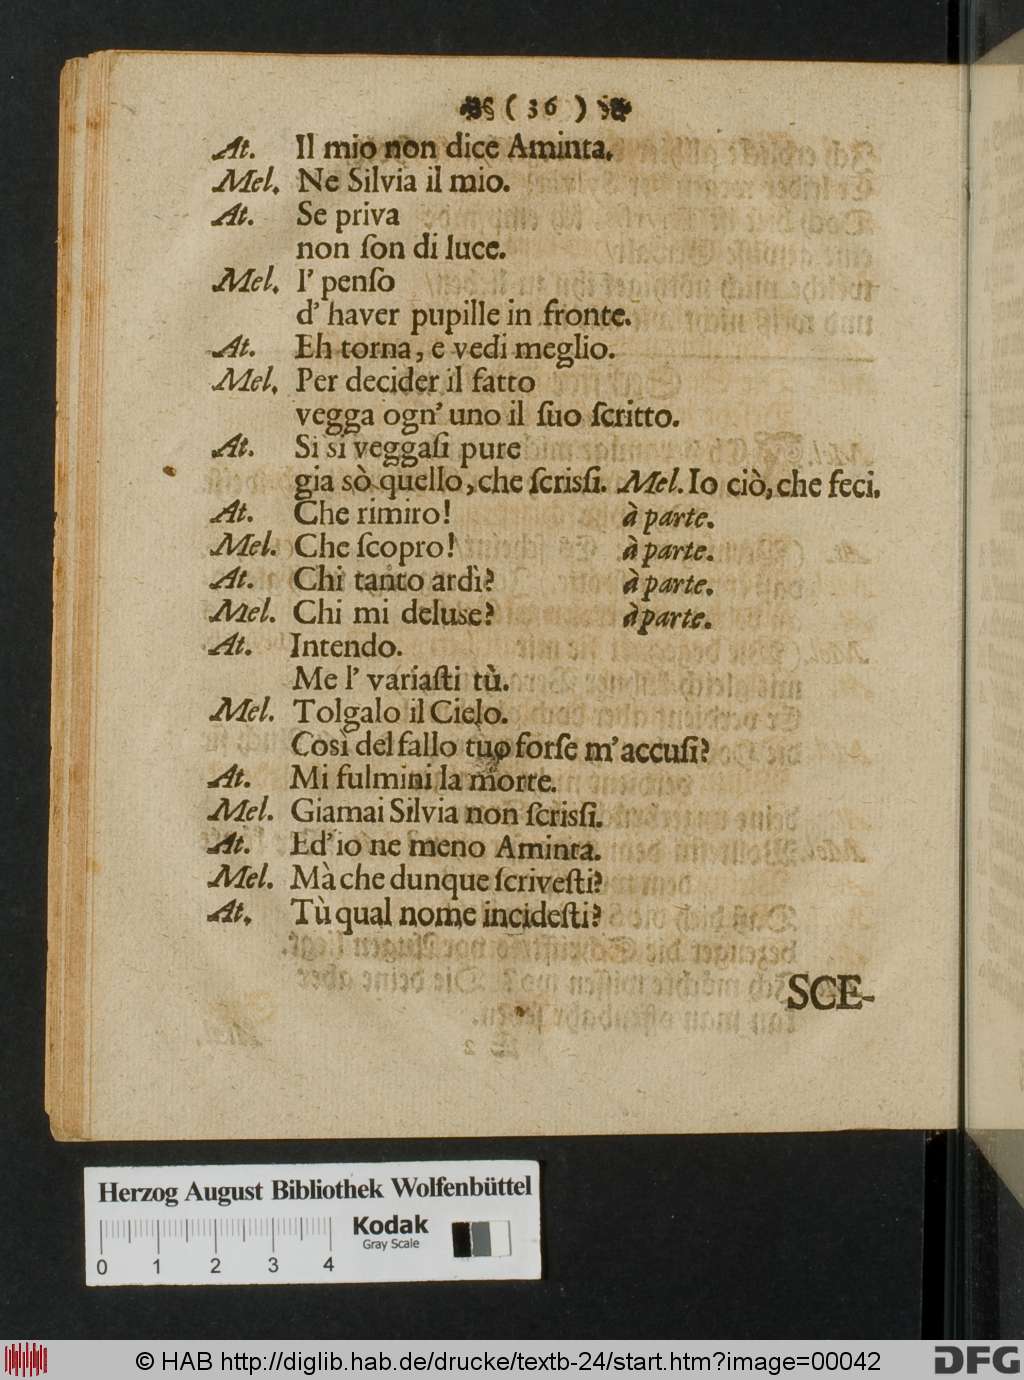 ( 36 )
At. Il mio non dice Aminta.
Mel. Ne Silvia il mio.
At. Se priva
non ſon di luce.
Mel. I' penſo
d' haver pupille in fronte.
At. Eh torna, e vedi meglio.
Mel. Per decider il fatto
vegga ogn' uno il ſuo ſcritto.
At. Si si veggaſi pure
gia sò quello, che ſcriſſi. Mel. Io ciò, che feci.
At. Che rimiro! à parte.
Mel. Che ſcopro! à parte.
At. Chi tanto ardì? à parte.
Mel. Chi mi deluse? à parte.
At. Intendo.
Me l' variaſti tù.
Mel. Tolgalo il Cielo.
Così del fallo tuo forſe m' accuſi?
At. Mi fulmini la morte.
Mel. Giamai Silvia non ſcriſſi.
At. Ed' io ne meno Aminta.
Mel. Mà che dunque ſcriveſti?
At. Tù qual nome incideſti?
SCE-
Herzog August Bibliothek Wolfenbüttel
Kodak
Gray Scale
0 1 2 3 4
© HAB http://diglib.hab.de/drucke/textb-24/start.htm?image=00042
DFG